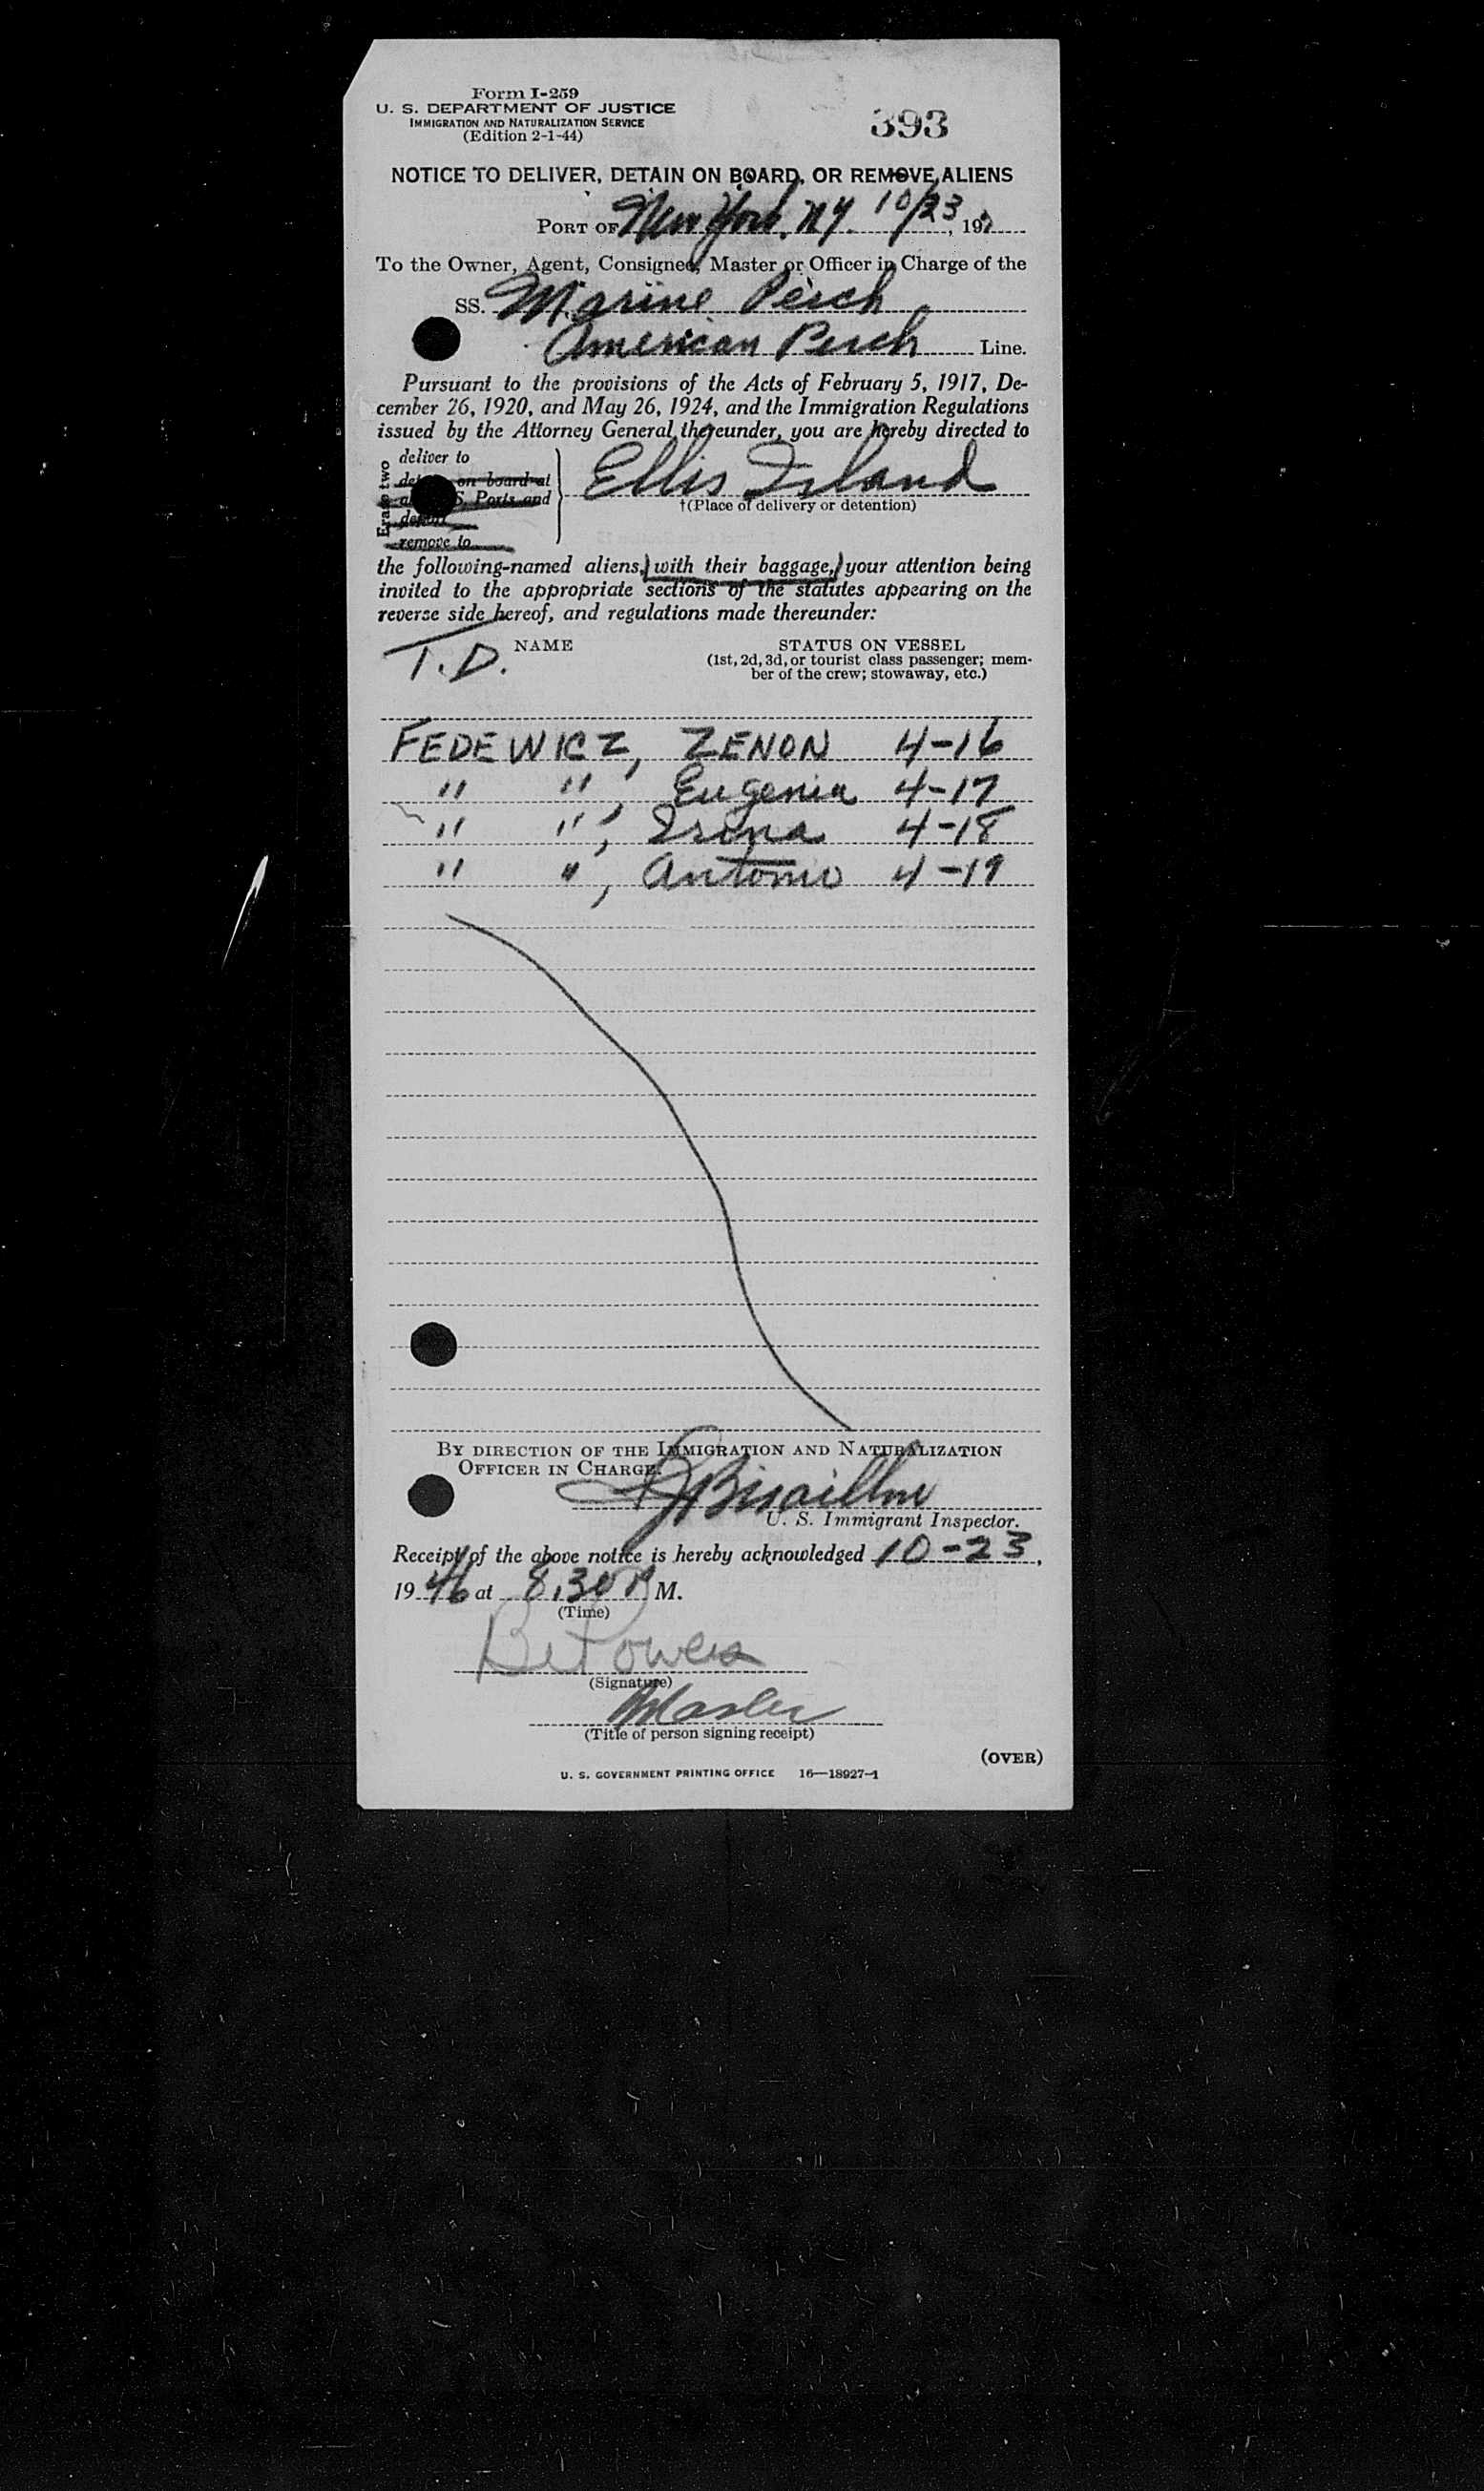 Form I-259
U. S. DEPARTMENT OF JUSTICE
IMMIGRATION AND NATURALIZATION SERVICE
(Edition 2-1-44)
393
NOTICE TO DELIVER, DETAIN ON BOARD, OR REMOVE ALIENS
PORT OF New York, NY. 10/23, 19
To the Owner, Agent, Consignee, Master or Officer in Charge of the
SS. Marine Perch
American Perch Line.
Pursuant to the provisions of the Acts of February 5, 1917, De-
cember 26, 1920, and May 26, 1924, and the Immigration Regulations
issued by the Attorney General thereunder, you are hereby directed to
Erase two
deliver to
on board at
S. Ports and
remove to
Ellis Island
†(Place of delivery or detention)
the following-named aliens, (with their baggage,) your attention being
invited to the appropriate sections of the statutes appearing on the
reverse side hereof, and regulations made thereunder:
T.D. NAME STATUS ON VESSEL
(1st, 2d, 3d, or tourist class passenger; mem-
ber of the crew; stowaway, etc.)
FEDEWICZ, ZENON 4-16
" ", Eugenia 4-17
" ", Irina 4-18
" ", Antonio 4-19
BY DIRECTION OF THE IMMIGRATION AND NATURALIZATION
OFFICER IN CHARGE.
U. S. Immigrant Inspector.
Receipt of the above notice is hereby acknowledged 10-23,
1946 at 8:30 P M.
(Time)
(Signature)
Master
(Title of person signing receipt)
(OVER)
U. S. GOVERNMENT PRINTING OFFICE 16—18927-1